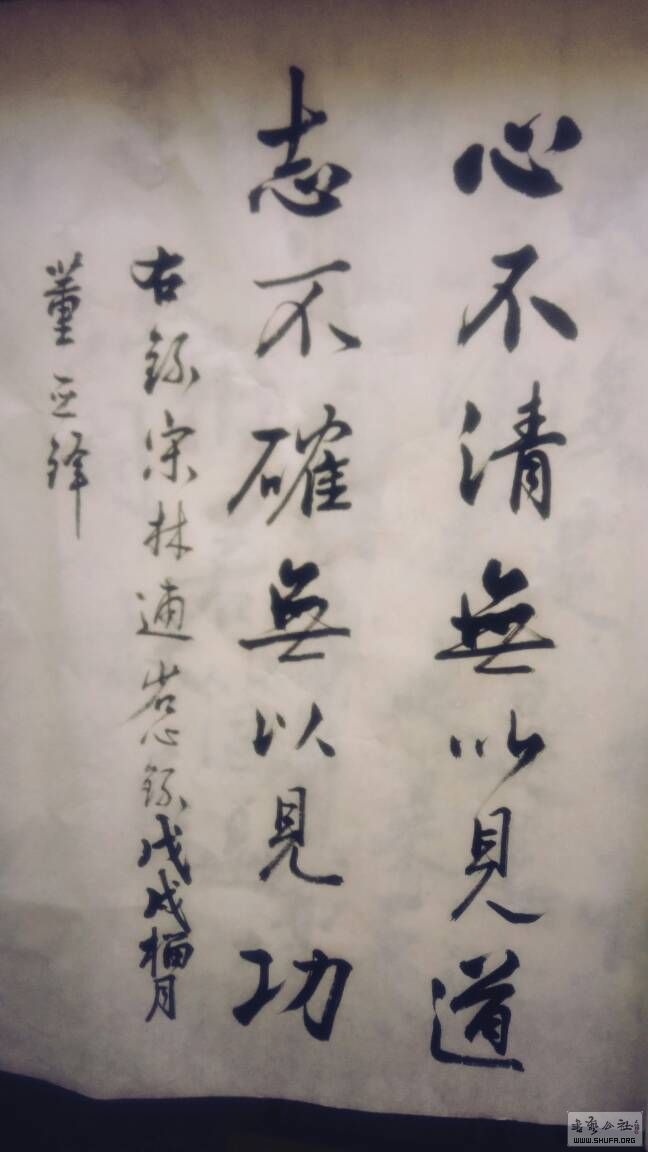 心不清無以見道
志不確無以見功
右錄宋林逋省心錄戊戌榴月
董亚鋒
書藝公社
WWW.SHUFA.ORG